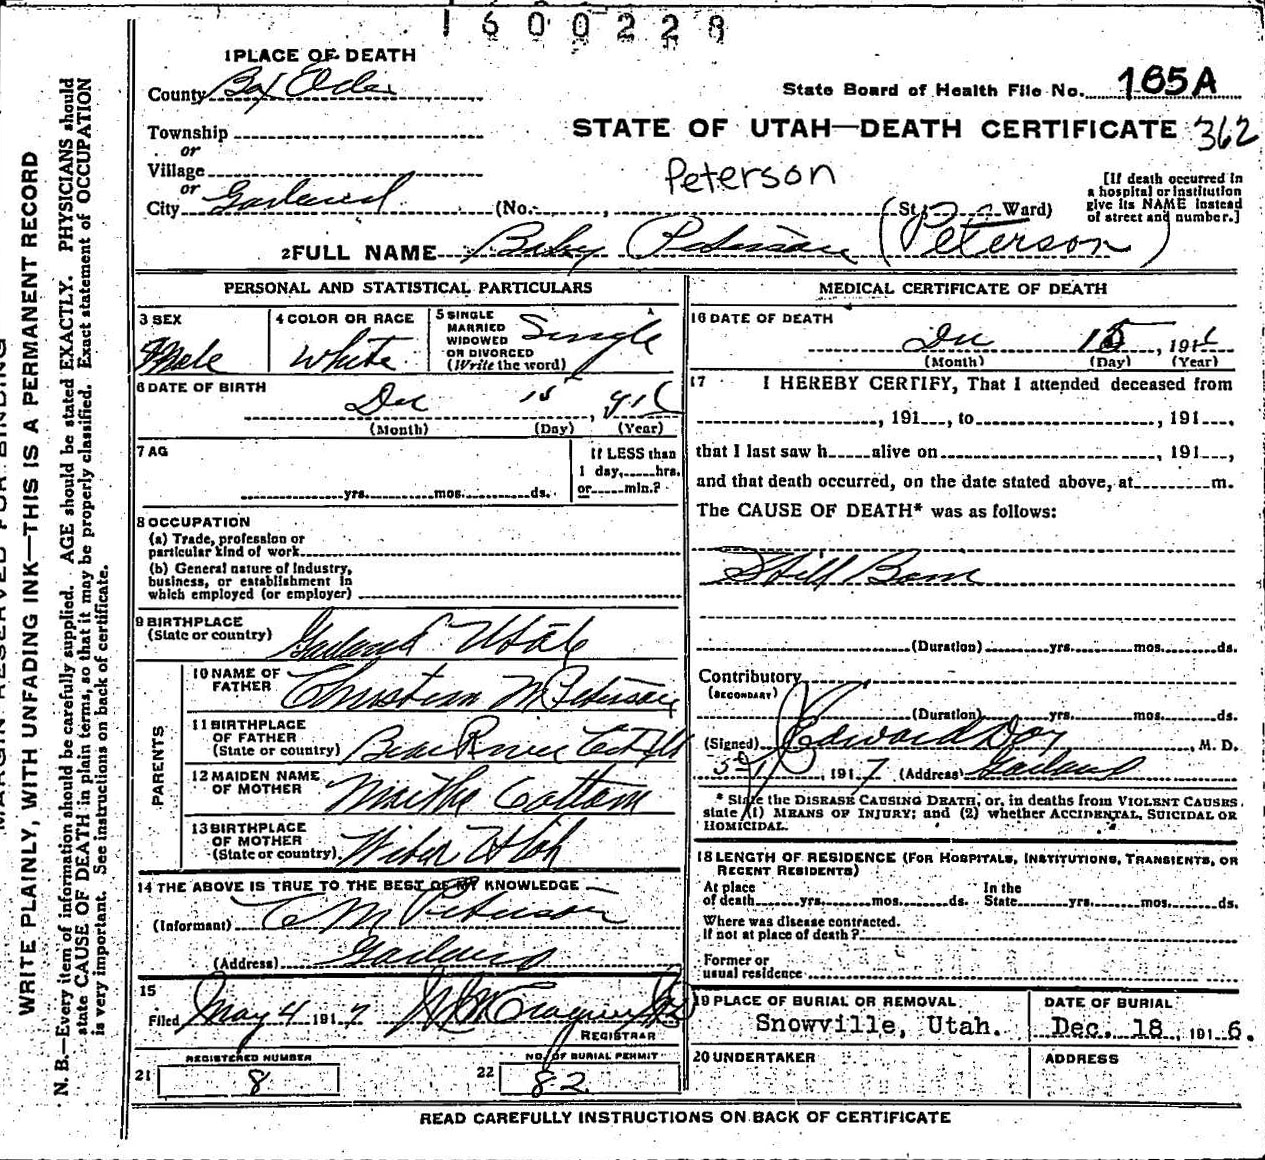 1600228
1 PLACE OF DEATH
County Box Elder
State Board of Health File No. 165A
Township
or
STATE OF UTAH—DEATH CERTIFICATE 362
Village
or
Peterson
[If death occurred in
a hospital or institution
give its NAME instead
of street and number.]
City Garland (No. , St; Ward)
2 FULL NAME Baby Peterson (Peterson)
PERSONAL AND STATISTICAL PARTICULARS
3 SEX
Male
4 COLOR OR RACE
White
5 SINGLE
MARRIED
WIDOWED
OR DIVORCED
(Write the word)
Single
6 DATE OF BIRTH
Dec 15, 916
(Month) (Day) (Year)
7 AG
yrs. mos. ds.
If LESS than
1 day, hrs.
or min.?
8 OCCUPATION
(a) Trade, profession or
particular kind of work
(b) General nature of Industry,
business, or establishment in
which employed (or employer)
9 BIRTHPLACE
(State or country) Garland Utah
PARENTS
10 NAME OF
FATHER Christian M Peterson
11 BIRTHPLACE
OF FATHER
(State or country) Bear River City Ut
12 MAIDEN NAME
OF MOTHER Martha Cottam
13 BIRTHPLACE
OF MOTHER
(State or country) Weber Utah
14 THE ABOVE IS TRUE TO THE BEST OF MY KNOWLEDGE
(Informant) C M Peterson
(Address) Garland
15
Filed May 4 1917
REGISTRAR
21 REGISTERED NUMBER
8
22 NO. OF BURIAL PERMIT
82
MEDICAL CERTIFICATE OF DEATH
16 DATE OF DEATH
Dec 15, 1916
(Month) (Day) (Year)
17 I HEREBY CERTIFY, That I attended deceased from
, 191 , to , 191 ,
that I last saw h alive on , 191 ,
and that death occurred, on the date stated above, at m.
The CAUSE OF DEATH* was as follows:
Still Born
(Duration) yrs. mos. ds.
Contributory
(SECONDARY)
(Duration) yrs. mos. ds.
(Signed) Edward , M. D.
, 1917 (Address) Garland
* State the DISEASE CAUSING DEATH, or, in deaths from VIOLENT CAUSES,
state (1) MEANS OF INJURY; and (2) whether ACCIDENTAL, SUICIDAL OR
HOMICIDAL.
18 LENGTH OF RESIDENCE (FOR HOSPITALS, INSTITUTIONS, TRANSIENTS, OR
RECENT RESIDENTS)
At place
of death yrs. mos. ds.
In the
State yrs. mos. ds.
Where was disease contracted.
If not at place of death?
Former or
usual residence
19 PLACE OF BURIAL OR REMOVAL
Snowville, Utah.
DATE OF BURIAL
Dec. 18, 1916.
20 UNDERTAKER
ADDRESS
READ CAREFULLY INSTRUCTIONS ON BACK OF CERTIFICATE
MARGIN RESERVED FOR BINDING
WRITE PLAINLY, WITH UNFADING INK—THIS IS A PERMANENT RECORD
N. B.—Every item of information should be carefully supplied. AGE should be stated EXACTLY. PHYSICIANS should
state CAUSE OF DEATH in plain terms, so that it may be properly classified. Exact statement of OCCUPATION
is very important. See instructions on back of certificate.